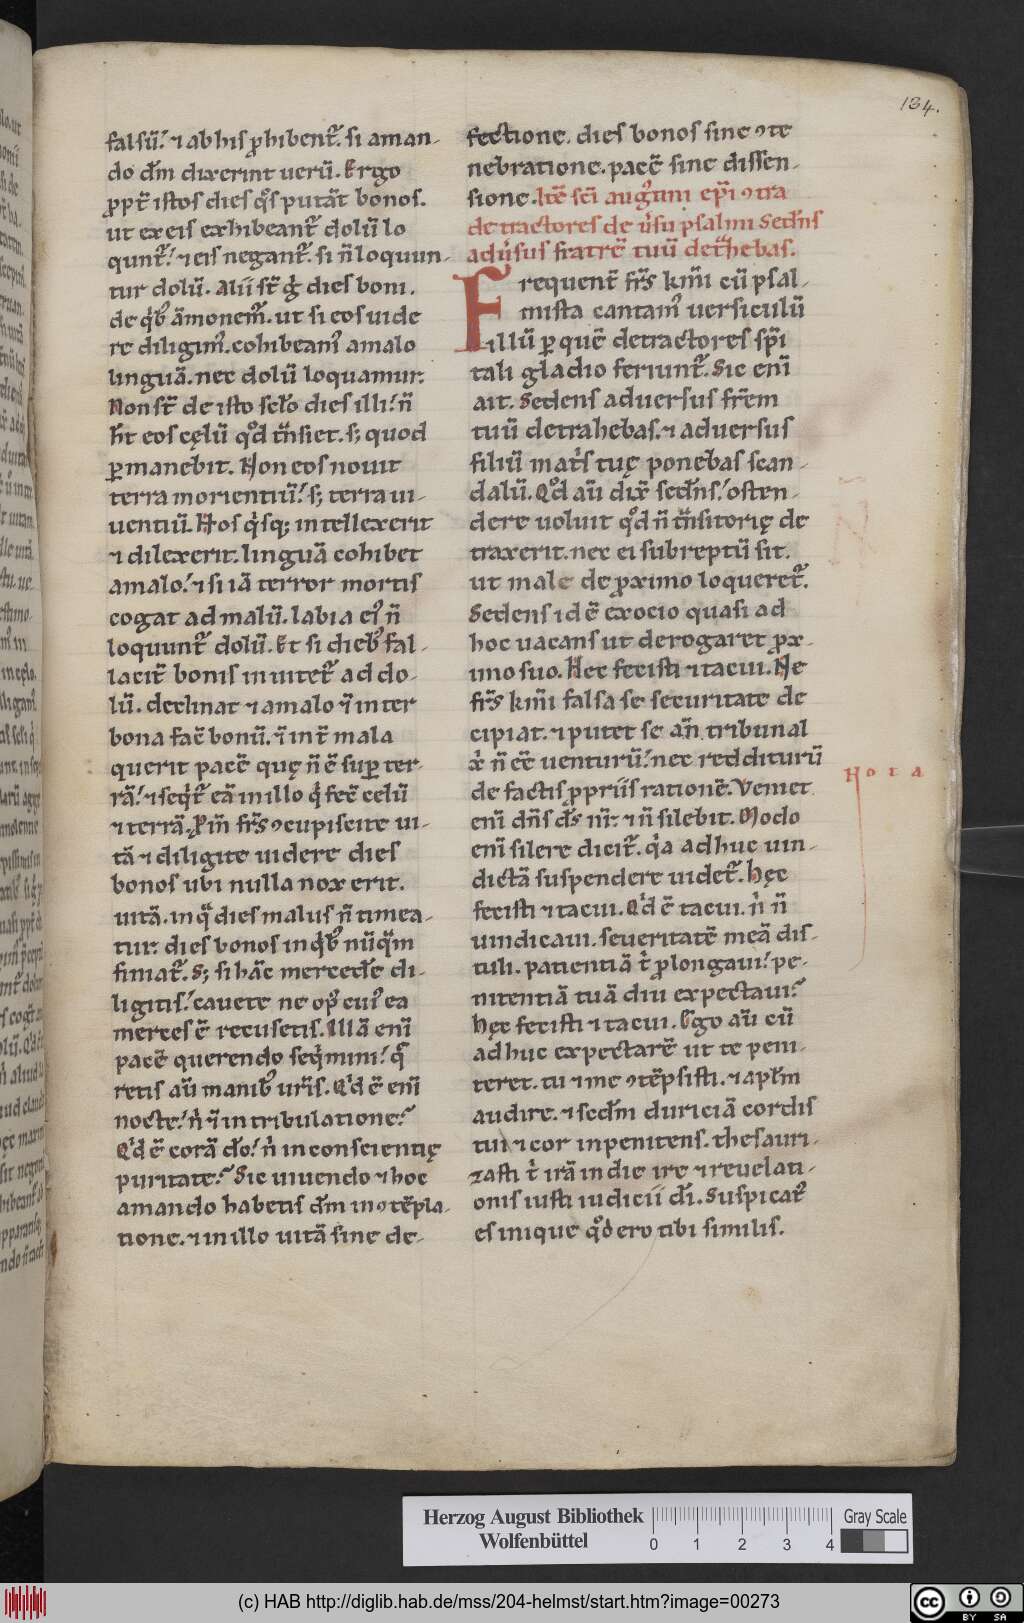 134.
falsū. ⁊ ab his ꝓhibent᷑. si aman-
do dm̄ dixerint uerū. Ergo
ꝓpt̄ istos dies qͦs putāt bonos.
ut ex eis exhibeant᷑ dolū lo
qunt᷑. ⁊ eis negant᷑. si n̄ loquun-
tur dolū. Alii st̄ g̊ dies boni.
de qͥb᷒ āmonem᷑. ut si eos uide
re diligim᷒. cohibeam᷒ a malo
linguā. nec dolū loquamur.
Non st̄ de isto scl̄o dies illi. n̄
ht̄ eos cęlū qͦd t̄nsiet. s; quod
ꝑmanebit. Non eos nouit
terra morientiū. s; terra ui-
uentiū. Hos qͥsq; intellexerit
⁊ dilexerit. linguā cohibet
a malo. ⁊ si iā terror mortis
cogat ad malū. labia ei᷒ n̄
loquunt᷑ dolū. Et si dieb᷒ fal-
lacit̄ bonis inuitet᷑ ad do-
lū. declinat ⁊ a malo ⁊ inter
bona facē bonū. ⁊ int̄ mala
querit pacē quę n̄ ē suꝑ ter-
rā. ⁊ seqͥt᷑ eā in illo qͥ fec̄ celū
⁊ terrā. Pͥm̄ frs̄ ꝯcupiscite ui-
tā ⁊ diligite uidere dies
bonos ubi nulla nox erit.
uitā. in qͣ dies malus n̄ timea-
tur. dies bonos in qͥb᷒ nūqͣm
finiat᷑. S; si hāc mercedē di-
ligitis. cauete ne op᷒ cui᷒ ea
merces ē recusetis. Illā enī
pacē querendo seqͥmini. qͣ
retis aū manib᷒ urīs. Qͥd ē enī
nocte. nͥ ⁊ in tribulatione.
Qͥd ē corā dō. nͥ in conscientię
puritate. Sic uiuendo ⁊ hoc
amando habetis dm̄ in ꝯtēpla-
tione. ⁊ in illo uitā sine de-
fectione. dies bonos sine ꝯte
nebratione. pacē sine dissen-
sione. Itē sc̄i aug᷒tini ep̄i ꝯtra
detractores de u̓su psalmi Sedn̄s
adu̓sus fratrē tuū det̄hebas.
Frequent̄ frs̄ km̄i cū psal-
mista cantam᷒ uersiculū
illū ꝑ quē detractores sp̄i
tali gladio feriunt᷑. Sic enī
ait. Sedens aduersus frēm
tuū detrahebas. ⁊ aduersus
filiū mat̄s tuę ponebas scan-
dalū. Qͦd aū dix̄ sedn̄s. osten-
dere uoluit qͦd n̄ t̄nsitorię de
traxerit. nec ei subreptū sit.
ut male de ꝓximo loqueret᷑.
Sedens id ē ex ocio quasi ad
hoc uacans ut derogaret ꝓx-
imo suo. Hęc fecisti ⁊ tacui. Ne
frs̄ km̄i falsa se securitate de
cipiat. ⁊ putet se an̄ tribunal
xͥ n̄ eē uenturū. nec redditurū
de factis ꝓpriis rationē. Veniet
enī dn̄s ds̄ nr̄. ⁊ n̄ silebit. Modo
enī silere dicit᷑. qͥa adhuc uin-
dictā suspendere uidet᷑. Hęc
fecisti ⁊ tacui. Qͥd ē tacui. nͥ n̄
uindicaui. seueritatē meā dis-
tuli. patientiā tͥ ꝓlongaui. pe-
nitentiā tuā diu expectaui.
Hęc fecisti ⁊ tacui. Ego aū cū
adhuc expectarē ut te peni-
teret. tu ⁊ me ꝯtēpsisti. ⁊ apl̄m
audire. ⁊ secdm̄ duriciā cordis
tui ⁊ cor inpenitens. thesauri-
zasti tͥ irā in die ire ⁊ reuelati-
onis iusti iudicii dī. Suspicat᷒
es inique qͦd ero tibi similis.
Nota
Herzog August Bibliothek
Wolfenbüttel
0 1 2 3 4
Gray Scale
(c) HAB http://diglib.hab.de/mss/204-helmst/start.htm?image=00273
cc BY SA